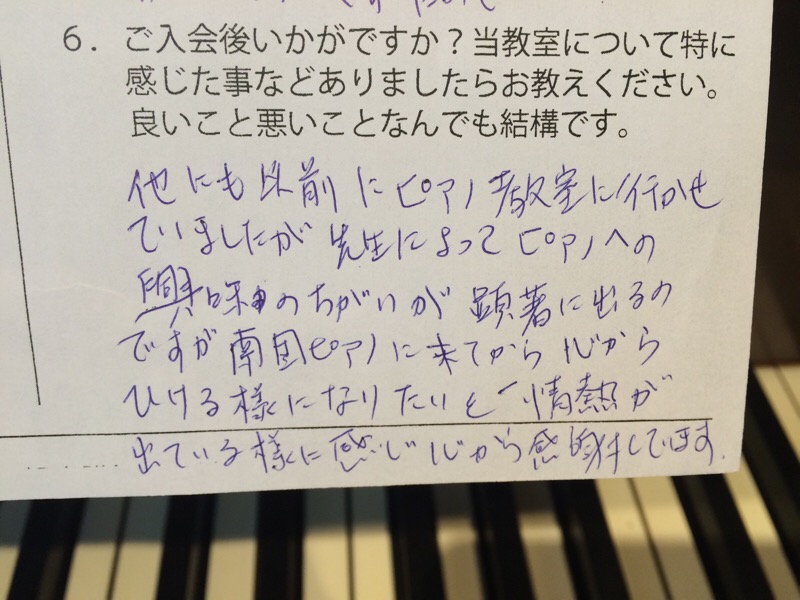 6．ご入会後いかがですか？当教室について特に
感じた事などありましたらお教えください。
良いこと悪いことなんでも結構です。
他にも以前にピアノ教室に行かせ
ていましたが先生によってピアノへの
興味のちがいが顕著に出るの
ですが南国ピアノに来てから心から
ひける様になりたいと情熱が
出ている様に感じ心から感謝しています.